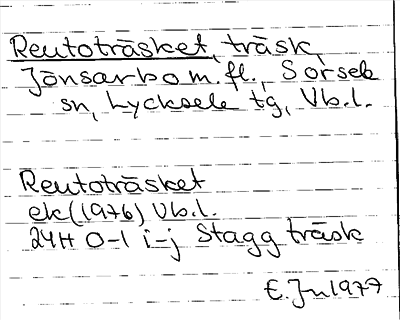 Reutoträsket, träsk,
Jonsarbo m.fl., Sorsele
sn, Lycksele tg, Vb.l.
Reutoträsket
ek(1976) Vb.l.
24H 0-1 i-j Stagg träsk
E. Jn 1977